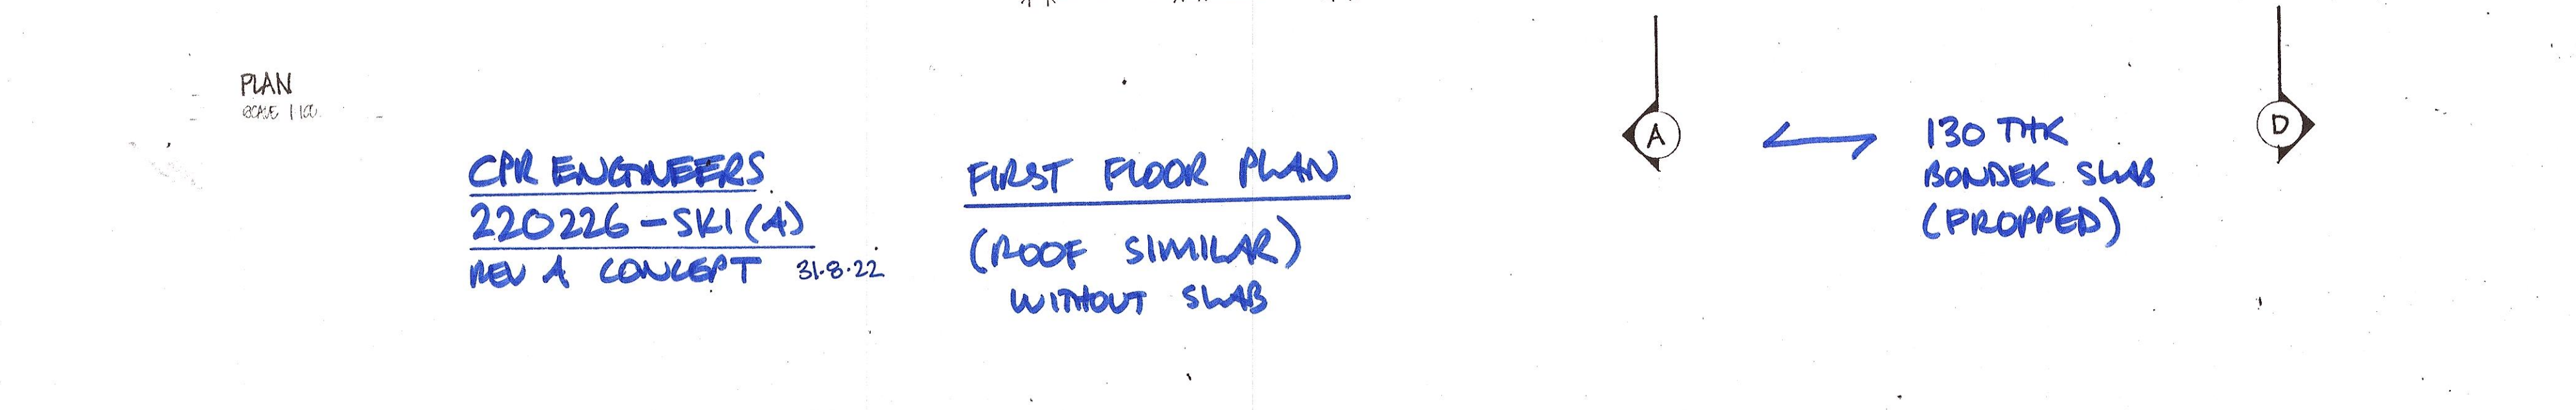 PLAN
SCALE 1:100
CPR ENGINEERS
220226-SK1(A)
REV A CONCEPT 31.8.22
FIRST FLOOR PLAN
(ROOF SIMILAR)
WITHOUT SLAB
A
130 THK
BONDEK SLAB
(PROPPED)
D